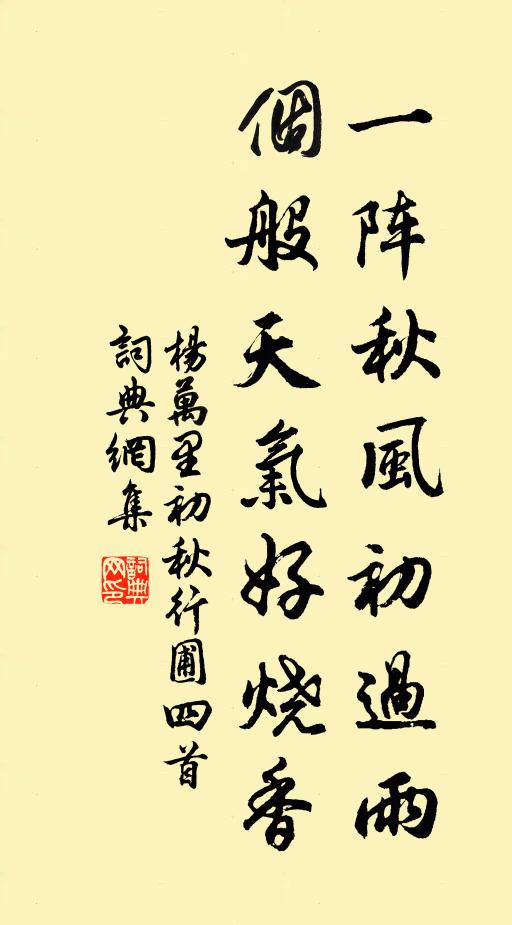 一阵秋風初過雨
個般天氣好烧香
楊萬里初秋行圃四首
詞典網集
詞典网印